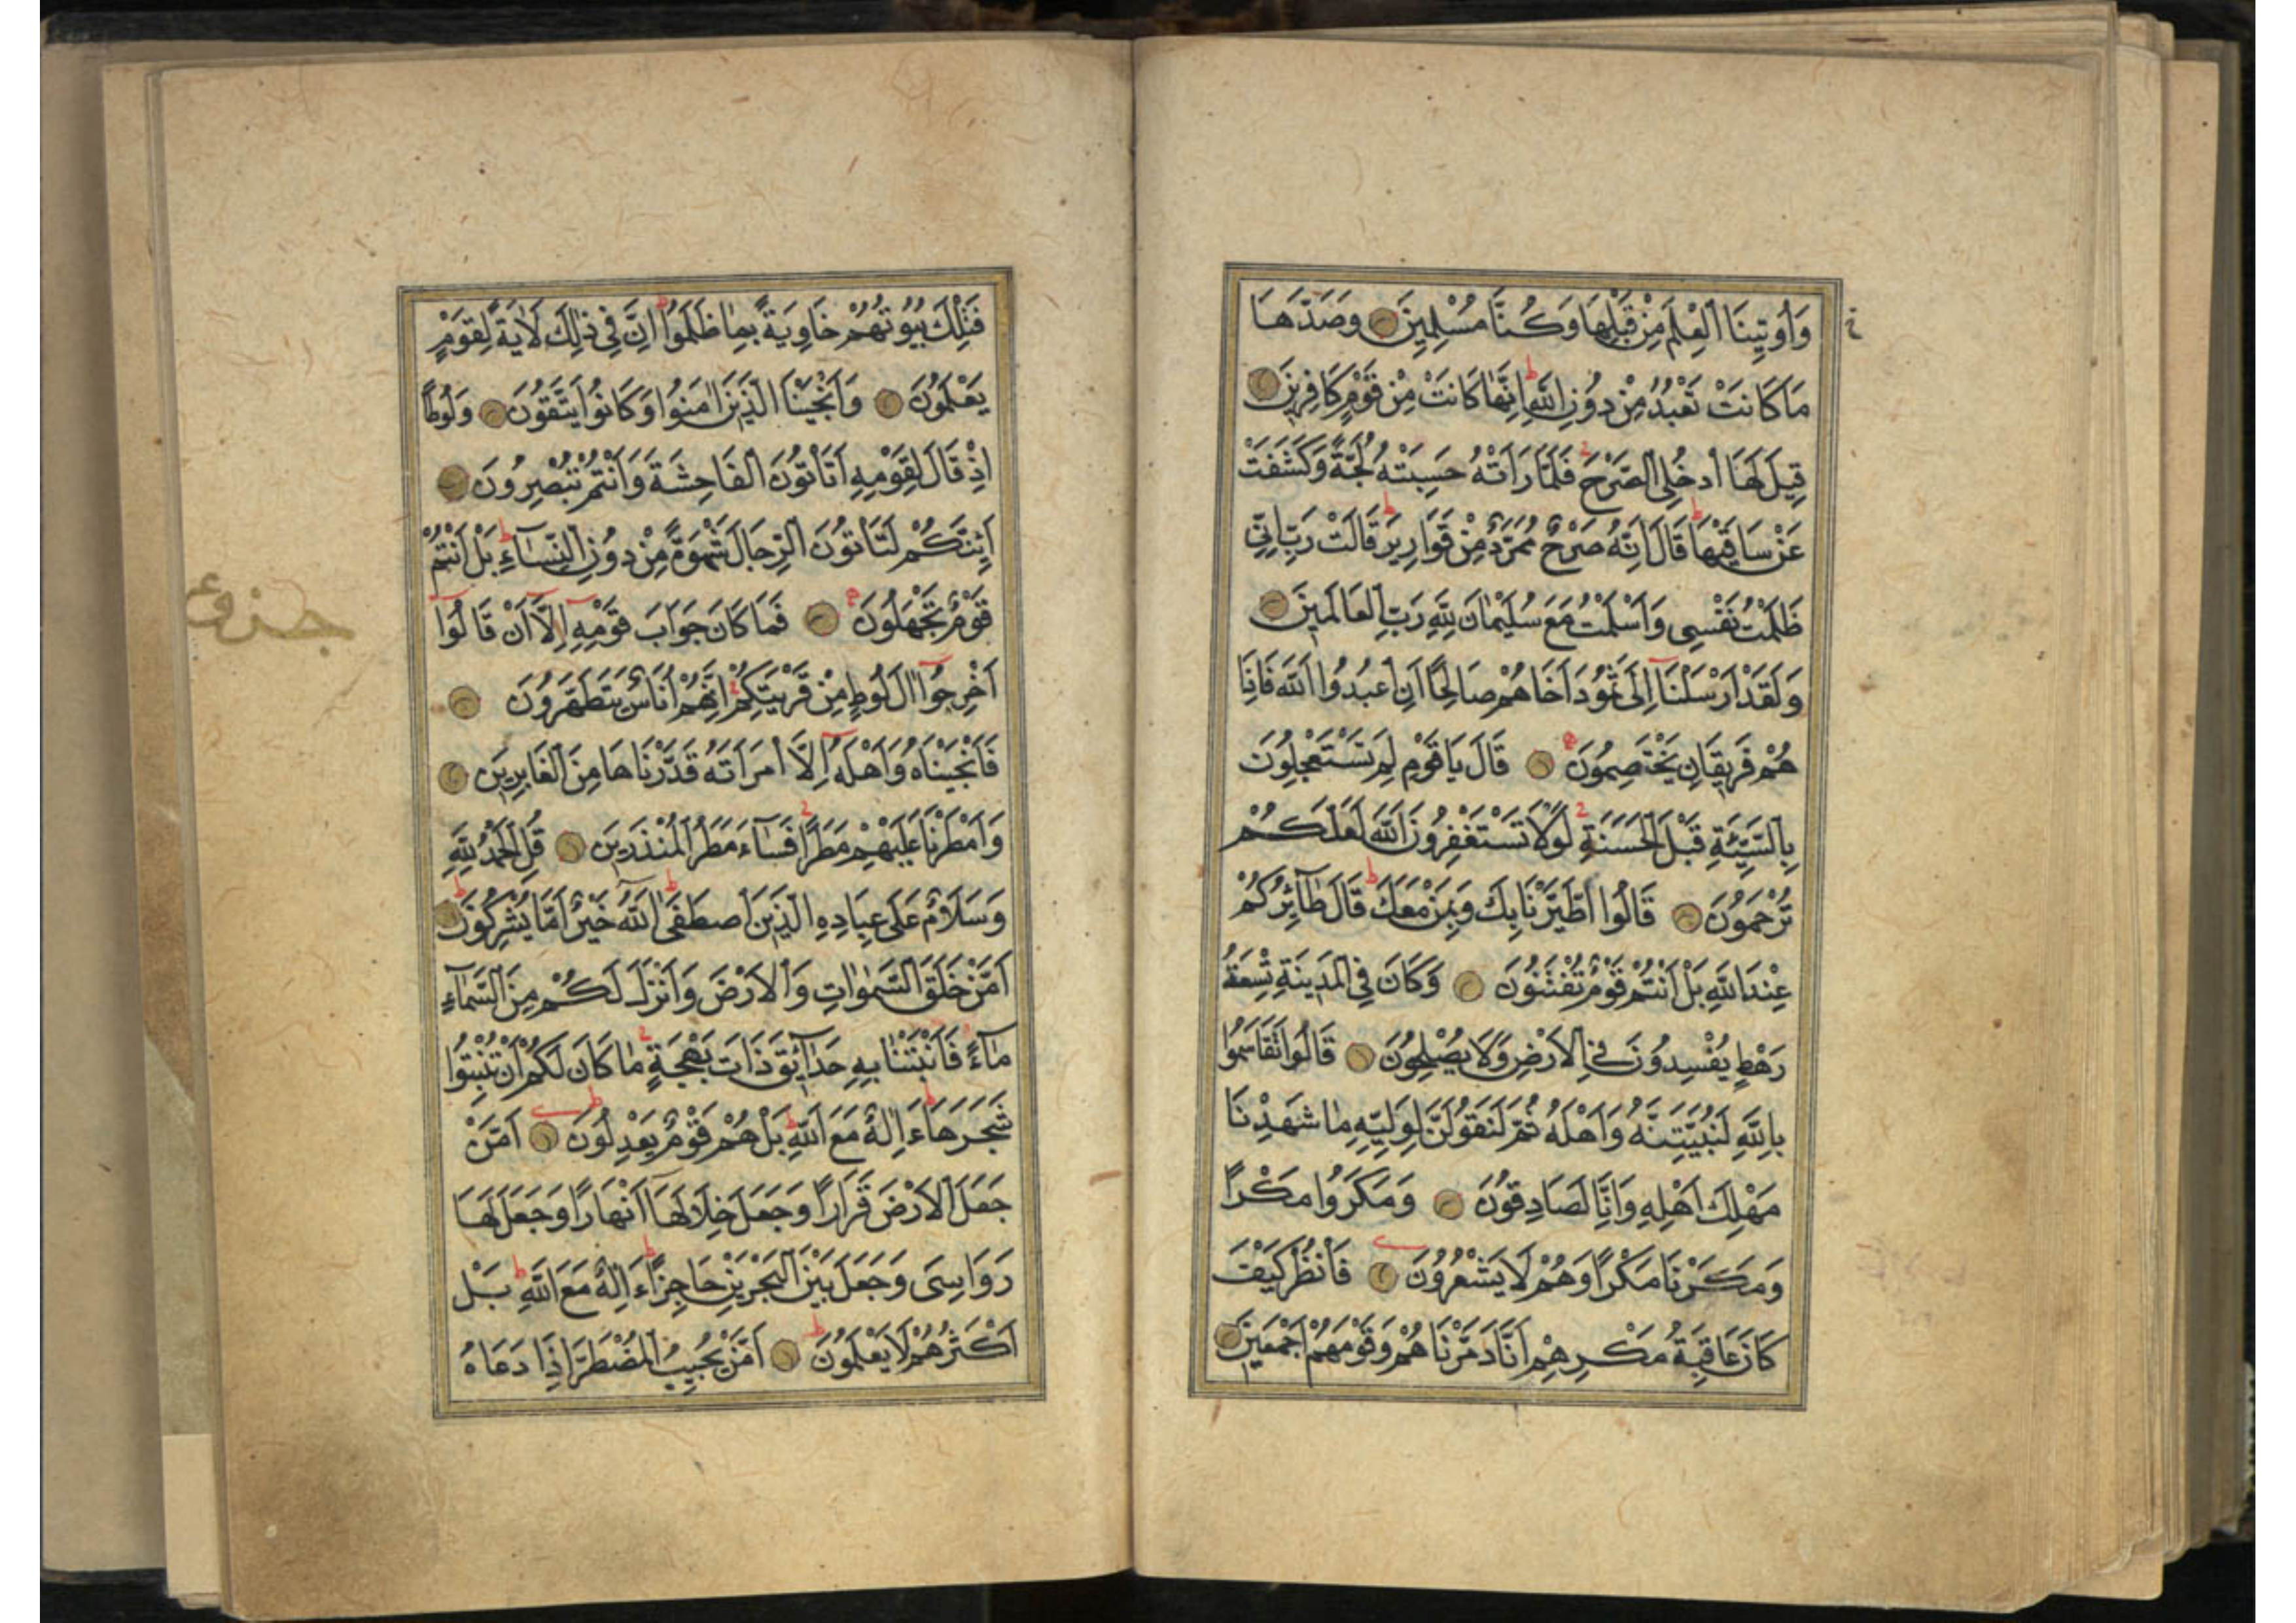 وَأُوتِينَا الْعِلْمَ مِنْ قَبْلِهَا وَكُنَّا مُسْلِمِينَ وَصَدَّهَا
مَا كَانَتْ تَعْبُدُ مِنْ دُونِ اللَّهِ اِنَّهَا كَانَتْ مِنْ قَوْمٍ كَافِرِينَ
قِيلَ لَهَا ادْخُلِى الصَّرْحَ فَلَمَّا رَاَتْهُ حَسِبَتْهُ لُجَّةً وَكَشَفَتْ
عَنْ سَاقَيْهَا قَالَ اِنَّهُ صَرْحٌ مُمَرَّدٌ مِنْ قَوَارِيرَ قَالَتْ رَبِّ اِنِّى
ظَلَمْتُ نَفْسِى وَاَسْلَمْتُ مَعَ سُلَيْمٰانَ لِلّٰهِ رَبِّ الْعَالَمِينَ
وَلَقَدْ اَرْسَلْنَا اِلَى ثَمُودَ اَخَاهُمْ صَالِحًا اَنِ اعْبُدُوا اللّٰهَ فَاِذَا
هُمْ فَرِيقَانِ يَخْتَصِمُونَ قَالَ يَا قَوْمِ لِمَ تَسْتَعْجِلُونَ
بِالسَّيِّئَةِ قَبْلَ الْحَسَنَةِ لَوْلَا تَسْتَغْفِرُونَ اللّٰهَ لَعَلَّكُمْ
تُرْحَمُونَ قَالُوا اطَّيَّرْنَا بِكَ وَبِمَنْ مَعَكَ قَالَ طَآئِرُكُمْ
عِنْدَ اللّٰهِ بَلْ اَنْتُمْ قَوْمٌ تُفْتَنُونَ وَكَانَ فِى الْمَدِينَةِ تِسْعَةُ
رَهْطٍ يُفْسِدُونَ فِى الْاَرْضِ وَلَا يُصْلِحُونَ قَالُوا تَقَاسَمُوا
بِاللّٰهِ لَنُبَيِّتَنَّهُ وَاَهْلَهُ ثُمَّ لَنَقُولَنَّ لِوَلِيِّهِ مٰا شَهِدْنَا
مَهْلِكَ اَهْلِهِ وَاِنَّا لَصَادِقُونَ وَمَكَرُوا مَكْرًا
وَمَكَرْنَا مَكْرًا وَهُمْ لَا يَشْعُرُونَ فَانْظُرْ كَيْفَ
كَانَ عَاقِبَةُ مَكْرِهِمْ اَنَّا دَمَّرْنَاهُمْ وَقَوْمَهُمْ اَجْمَعِينَ
فَتِلْكَ بُيُوتُهُمْ خَاوِيَةً بِمٰا ظَلَمُوا اِنَّ فِى ذٰلِكَ لَاٰيَةً لِقَوْمٍ
يَعْلَمُونَ وَاَنْجَيْنَا الَّذِينَ اٰمَنُوا وَكَانُوا يَتَّقُونَ وَلُوطًا
اِذْ قَالَ لِقَوْمِهِ اَتَاْتُونَ الْفَاحِشَةَ وَاَنْتُمْ تُبْصِرُونَ
اَئِنَّكُمْ لَتَاْتُونَ الرِّجَالَ شَهْوَةً مِنْ دُونِ النِّسَآءِ بَلْ اَنْتُمْ
قَوْمٌ تَجْهَلُونَ فَمَا كَانَ جَوَابَ قَوْمِهِ اِلَّا اَنْ قَالُوا
اَخْرِجُوا اٰلَ لُوطٍ مِنْ قَرْيَتِكُمْ اِنَّهُمْ اُنَاسٌ يَتَطَهَّرُونَ
فَاَنْجَيْنَاهُ وَاَهْلَهُ اِلَّا امْرَاَتَهُ قَدَّرْنَاهَا مِنَ الْغَابِرِينَ
وَاَمْطَرْنَا عَلَيْهِمْ مَطَرًا فَسَآءَ مَطَرُ الْمُنْذَرِينَ قُلِ الْحَمْدُ لِلّٰهِ
وَسَلَامٌ عَلَى عِبَادِهِ الَّذِينَ اصْطَفٰى آللّٰهُ خَيْرٌ اَمَّا يُشْرِكُونَ
اَمَّنْ خَلَقَ السَّمٰوَاتِ وَالْاَرْضَ وَاَنْزَلَ لَكُمْ مِنَ السَّمَآءِ
مَآءً فَاَنْبَتْنَا بِهِ حَدَآئِقَ ذَاتَ بَهْجَةٍ مٰا كَانَ لَكُمْ اَنْ تُنْبِتُوا
شَجَرَهَا ءَاِلٰهٌ مَعَ اللّٰهِ بَلْ هُمْ قَوْمٌ يَعْدِلُونَ اَمَّنْ
جَعَلَ الْاَرْضَ قَرَارًا وَجَعَلَ خِلَالَهَا اَنْهَارًا وَجَعَلَ لَهَا
رَوَاسِىَ وَجَعَلَ بَيْنَ الْبَحْرَيْنِ حَاجِزًا ءَاِلٰهٌ مَعَ اللّٰهِ بَلْ
اَكْثَرُهُمْ لَا يَعْلَمُونَ اَمَّنْ يُجِيبُ الْمُضْطَرَّ اِذَا دَعَاهُ
جزوع